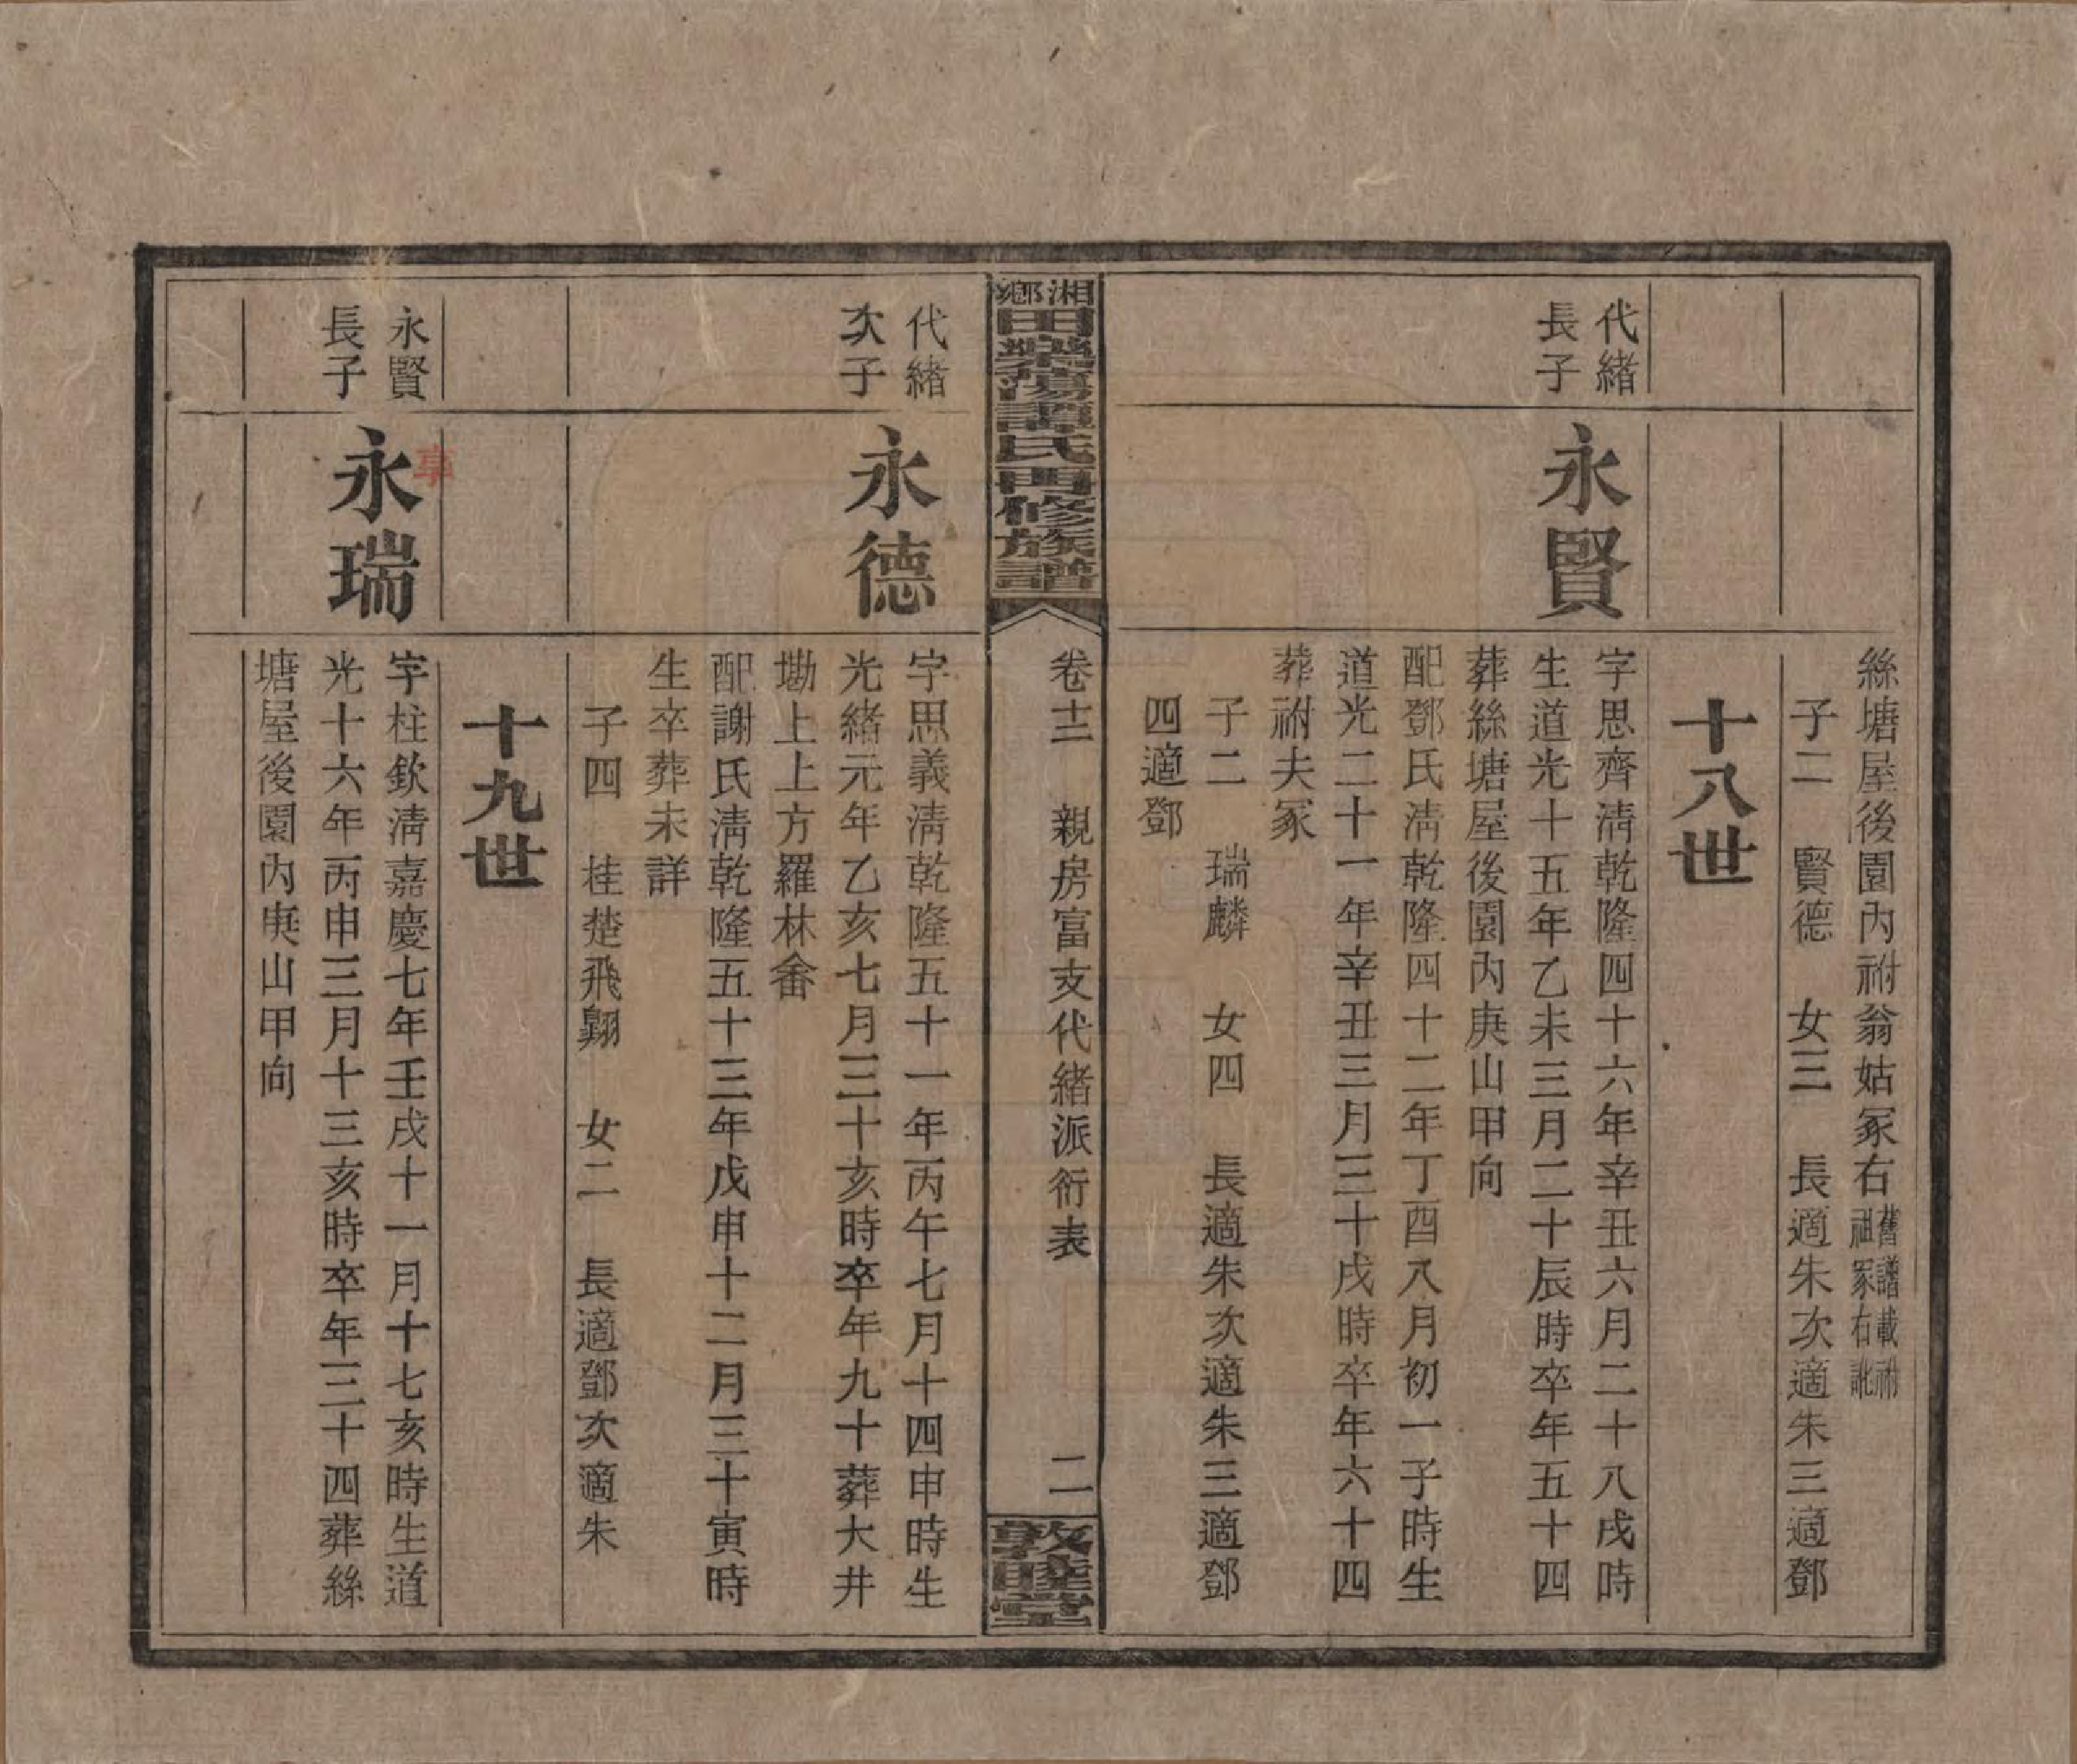 絲塘屋後園內祔翁姑冢右舊譜載祔祖冢右訛
子二　賢德　女三　長適朱次適朱三適鄧
十八世
代緒
長子
永賢
字思齊淸乾隆四十六年辛丑六月二十八戌時
生道光十五年乙未三月二十辰時卒年五十四
葬絲塘屋後園內庚山甲向
配鄧氏淸乾隆四十二年丁酉八月初一子時生
道光二十一年辛丑三月三十戌時卒年六十四
葬祔夫冢
子二　瑞麟　女四　長適朱次適朱三適鄧
四適鄧
湘鄉田𡑞蕩譚氏再修族譜
卷十二　親房富支代緒派衍表
二
敦睦堂
代緒
次子
永德
字思義淸乾隆五十一年丙午七月十四申時生
光緒元年乙亥七月三十亥時卒年九十葬大井
墈上上方羅林畲
配謝氏淸乾隆五十三年戊申十二月三十寅時
生卒葬未詳
子四　桂楚飛翺　女二　長適鄧次適朱
十九世
永賢
長子
享
永瑞
字柱欽淸嘉慶七年壬戌十一月十七亥時生道
光十六年丙申三月十三亥時卒年三十四葬絲
塘屋後園內庚山甲向